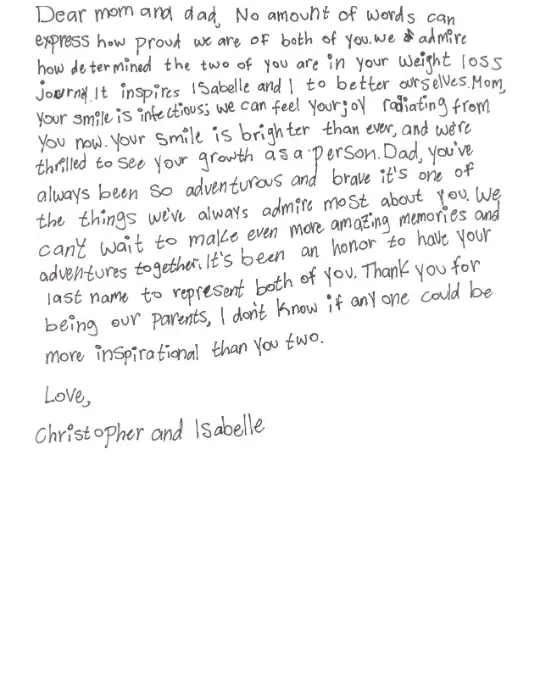 Dear mom and dad, No amount of words can
express how proud we are of both of you. we admire
how determined the two of you are in your weight loss
journy. It inspires Isabelle and I to better ourselves. Mom,
your smile is infectious; we can feel your joy radiating from
you now. your smile is brighter than ever, and we're
thrilled to see your growth as a person. Dad, you've
always been so adventurous and brave it's one of
the things we've always admire most about you. We
can't wait to make even more amazing memories and
adventures together. It's been an honor to have your
last name to represent both of you. Thank you for
being our parents, I don't know if anyone could be
more inspirational than you two.
Love,
Christopher and Isabelle